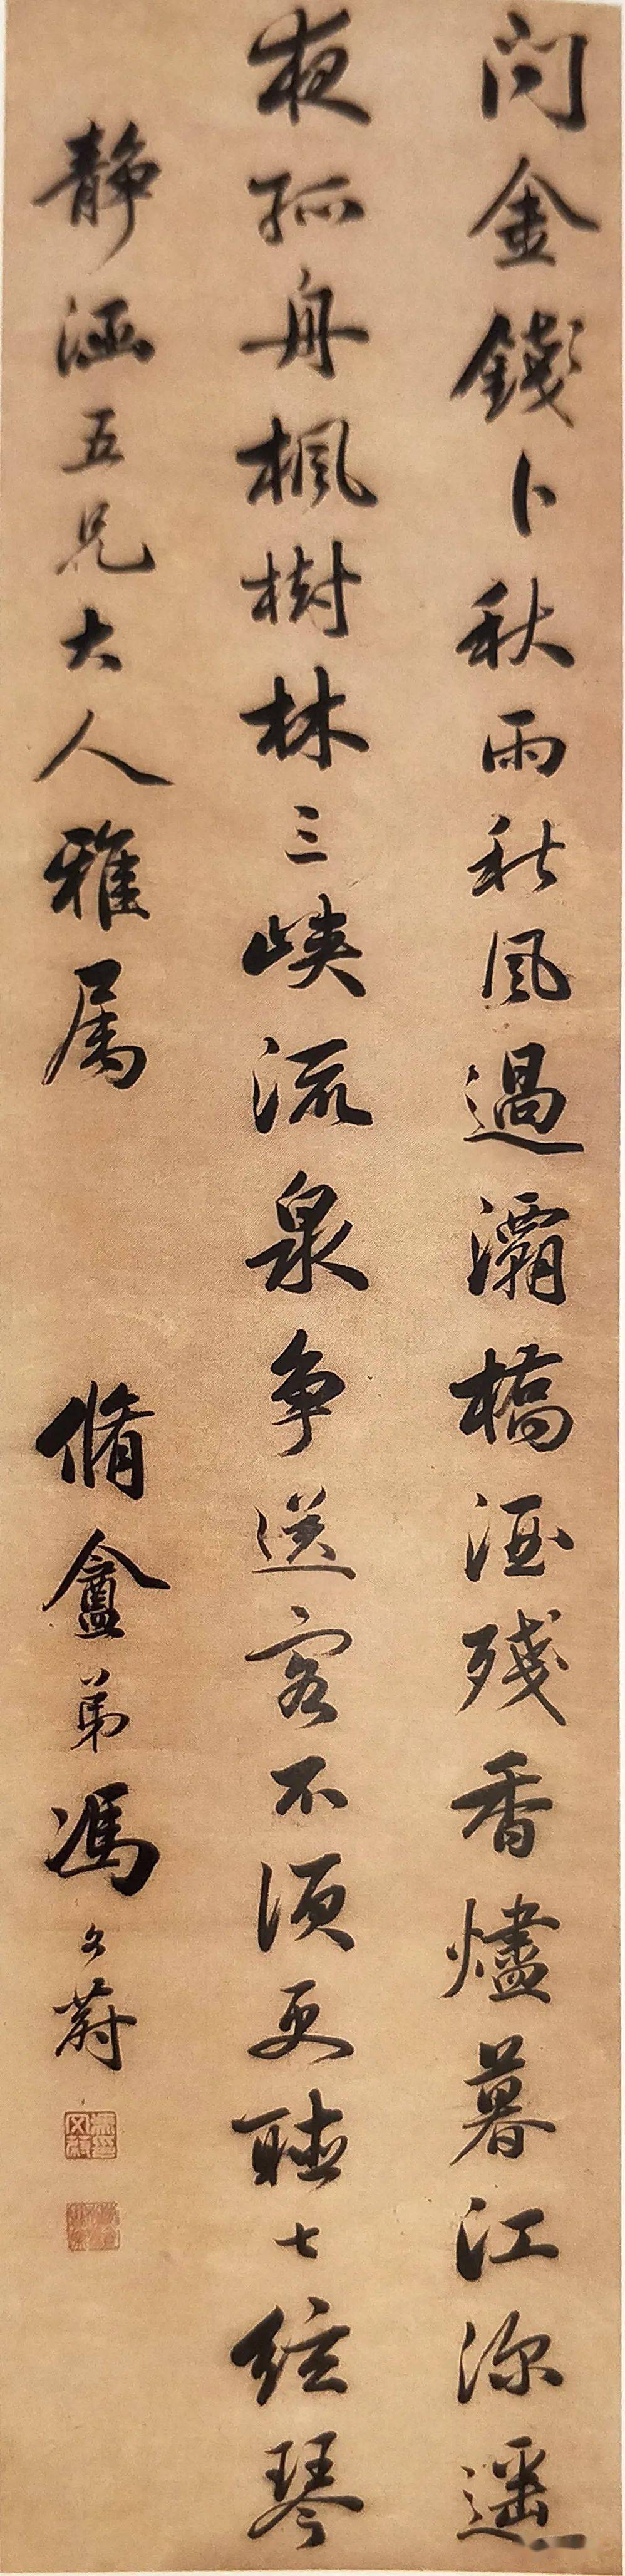 問金錢卜秋雨秋風過灞橋酒殘香燼暮江深遥
夜孤舟楓樹林三峽流泉争送客不須更聽七絃琴
静涵五兄大人雅属 脩盦弟馮文蔚